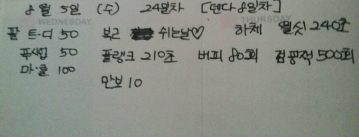 8월 5일 (수) 24일차 [던다 8일차]
WEDNESDAY THURSDAY
팔 트·더 50 복근 쉬는날♡ 하체 월싯 240초
푸쉽 50 플랭크 210초 버피 80회 점핑잭 500회
마·클 100
만보 10